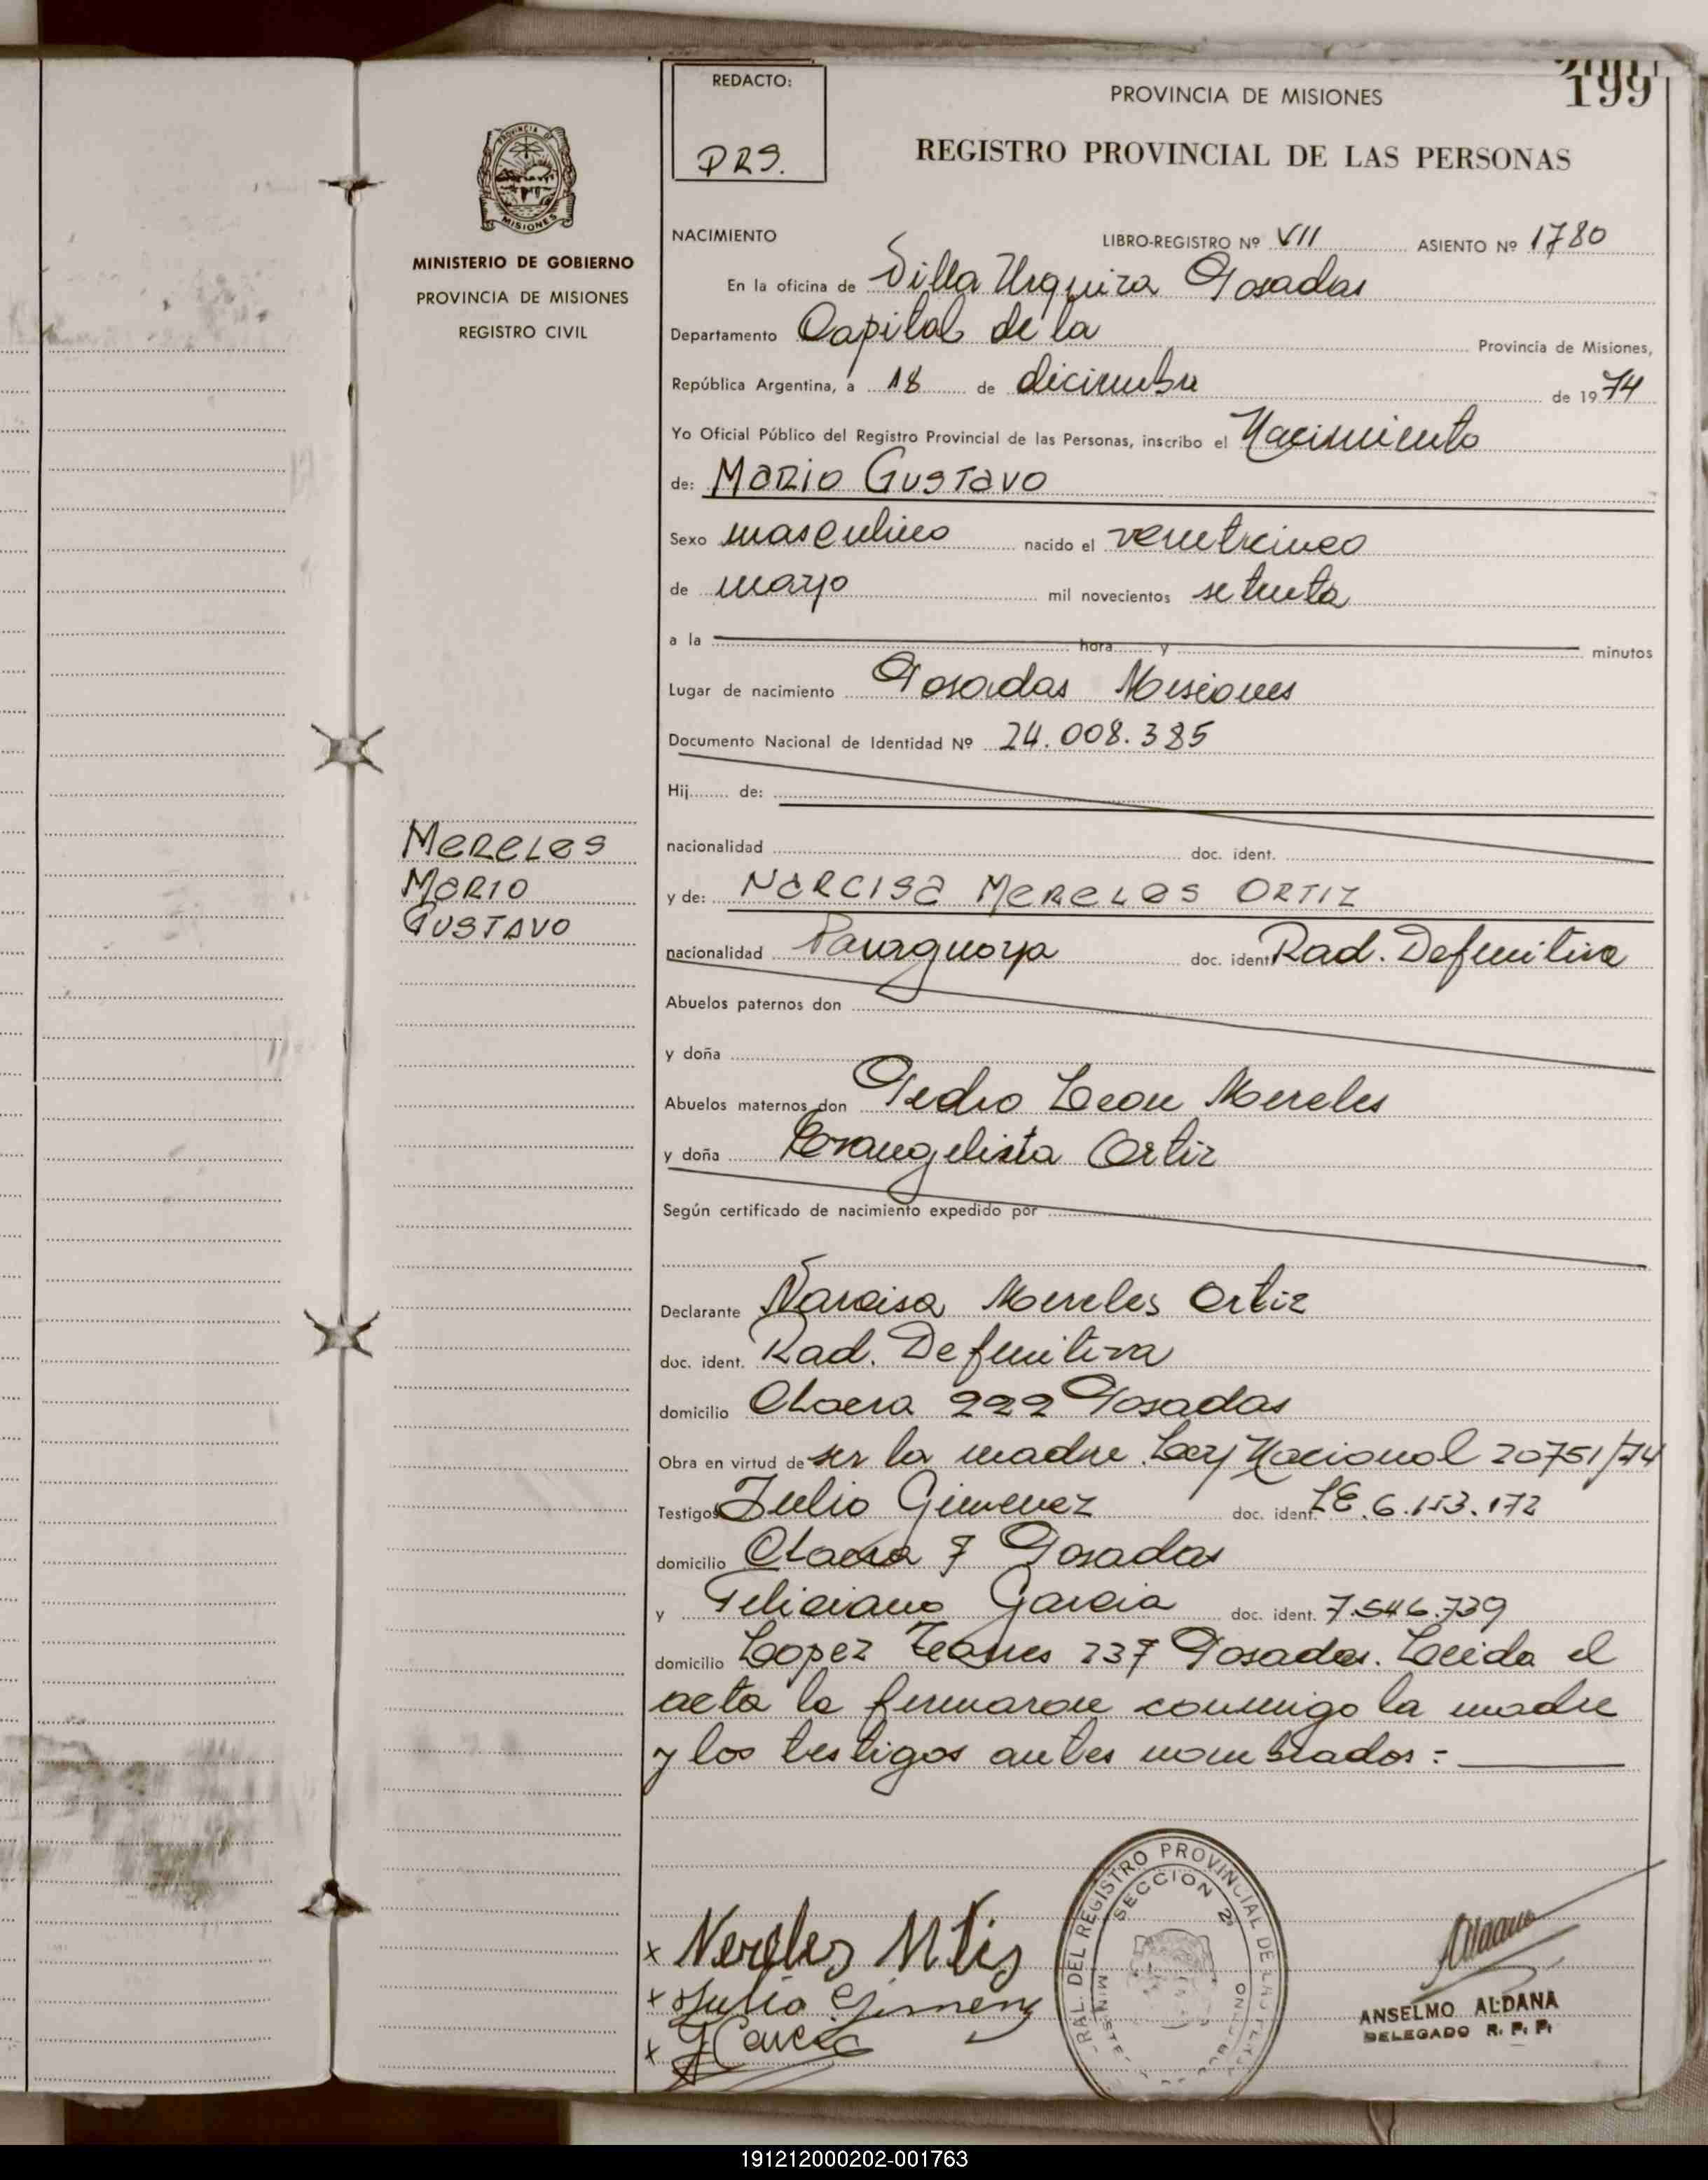 199
REDACTO:
DRS.
PROVINCIA DE MISIONES
REGISTRO PROVINCIAL DE LAS PERSONAS
PROVINCIA DE
MISIONES
MINISTERIO DE GOBIERNO
PROVINCIA DE MISIONES
REGISTRO CIVIL
NACIMIENTO LIBRO-REGISTRO Nº VII ASIENTO Nº 1780
En la oficina de Villa Urquiza Posadas
Departamento Capital de la Provincia de Misiones,
República Argentina, a 18 de diciembre de 1974
Yo Oficial Público del Registro Provincial de las Personas, inscribo el Nacimiento
de: Mario Gustavo
Sexo masculino nacido el veinticinco
de mayo mil novecientos setenta
a la hora y minutos
Lugar de nacimiento Posadas Misiones
Documento Nacional de Identidad Nº 24.008.385
Hij de:
nacionalidad doc. ident.
Mereles
Mario
Gustavo
y de: Narcisa Mereles Ortiz
nacionalidad Paraguaya doc. ident Rad. Definitiva
Abuelos paternos don
y doña
Abuelos maternos don Pedro Leon Mereles
y doña Evangelista Ortiz
Según certificado de nacimiento expedido por
Declarante Narcisa Mereles Ortiz
doc. ident. Rad. Definitiva
domicilio Chacra 222 Posadas
Obra en virtud de ser la madre. Ley Nacional 20751/74
Testigos Julio Gimenez doc. ident. LE. 6.153.172
domicilio Chacra 7 Posadas
y Feliciano Garcia doc. ident. 7.546.739
domicilio Lopez 237 Posadas. Leida el
acta la firmaron conmigo la madre
y los testigos antes nombrados:
x Mereles
x Julio Gimenez
x Garcia
RAL. DEL REGISTRO PROVINCIAL DE LAS
SECCION 2ª
ANSELMO ALDANA
DELEGADO R. P. P.
191212000202-001763